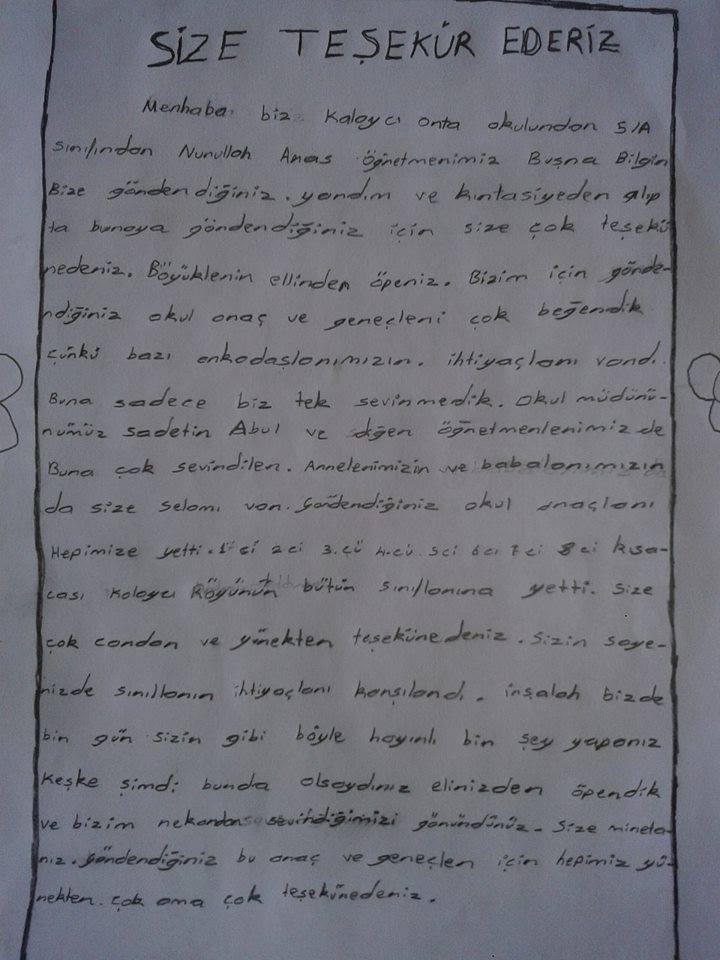 SİZE TEŞEKÜR EDERİZ
Merhaba biz Kalaycı orta okulundan 5/A
sınıfından Nurullah Aras öğretmenimiz Buşra Bilgin
Bize gönderdiğiniz. yardım ve kırtasiyeden alıp
ta buraya gönderdiğiniz için size çok teşekü
rederiz. Böyüklerin ellinden öperiz. Bizim için gönde-
rdiğiniz okul araç ve gereçleri çok beğendik
çünkü bazı arkadaşlarımızın. ihtiyaçları vardı.
Buna sadece biz tek sevinmedik. Okul müdürü-
rümüz sadetin Abul ve diğer öğretmenlerimiz de
Buna çok sevindiler. Annelerimizin ve babalarımızın
da size selamı var. Gönderdiğiniz okul araçları
Hepimize yetti. 1ci 2ci 3.cü 4.cü 5ci 6cı 7ci 8ci kısa-
cası Kalaycı Köyünün bütün sınıflarına yetti. Size
çok candan ve yürekten teşekürederiz. Sizin saye-
nizde sınıfların ihtiyaçları karşılandı. inşalah bizde
bir gün sizin gibi böyle hayırlı bir şey yaparız
Keşke şimdi burda olsaydınız elinizden öperdik
ve bizim nekardar sevindiğimizi görürdünüz. Size mineta-
rız. Gönderdiğiniz bu araç ve gereçler için hepimiz yü-
rekten. çok ama çok teşekürederiz.